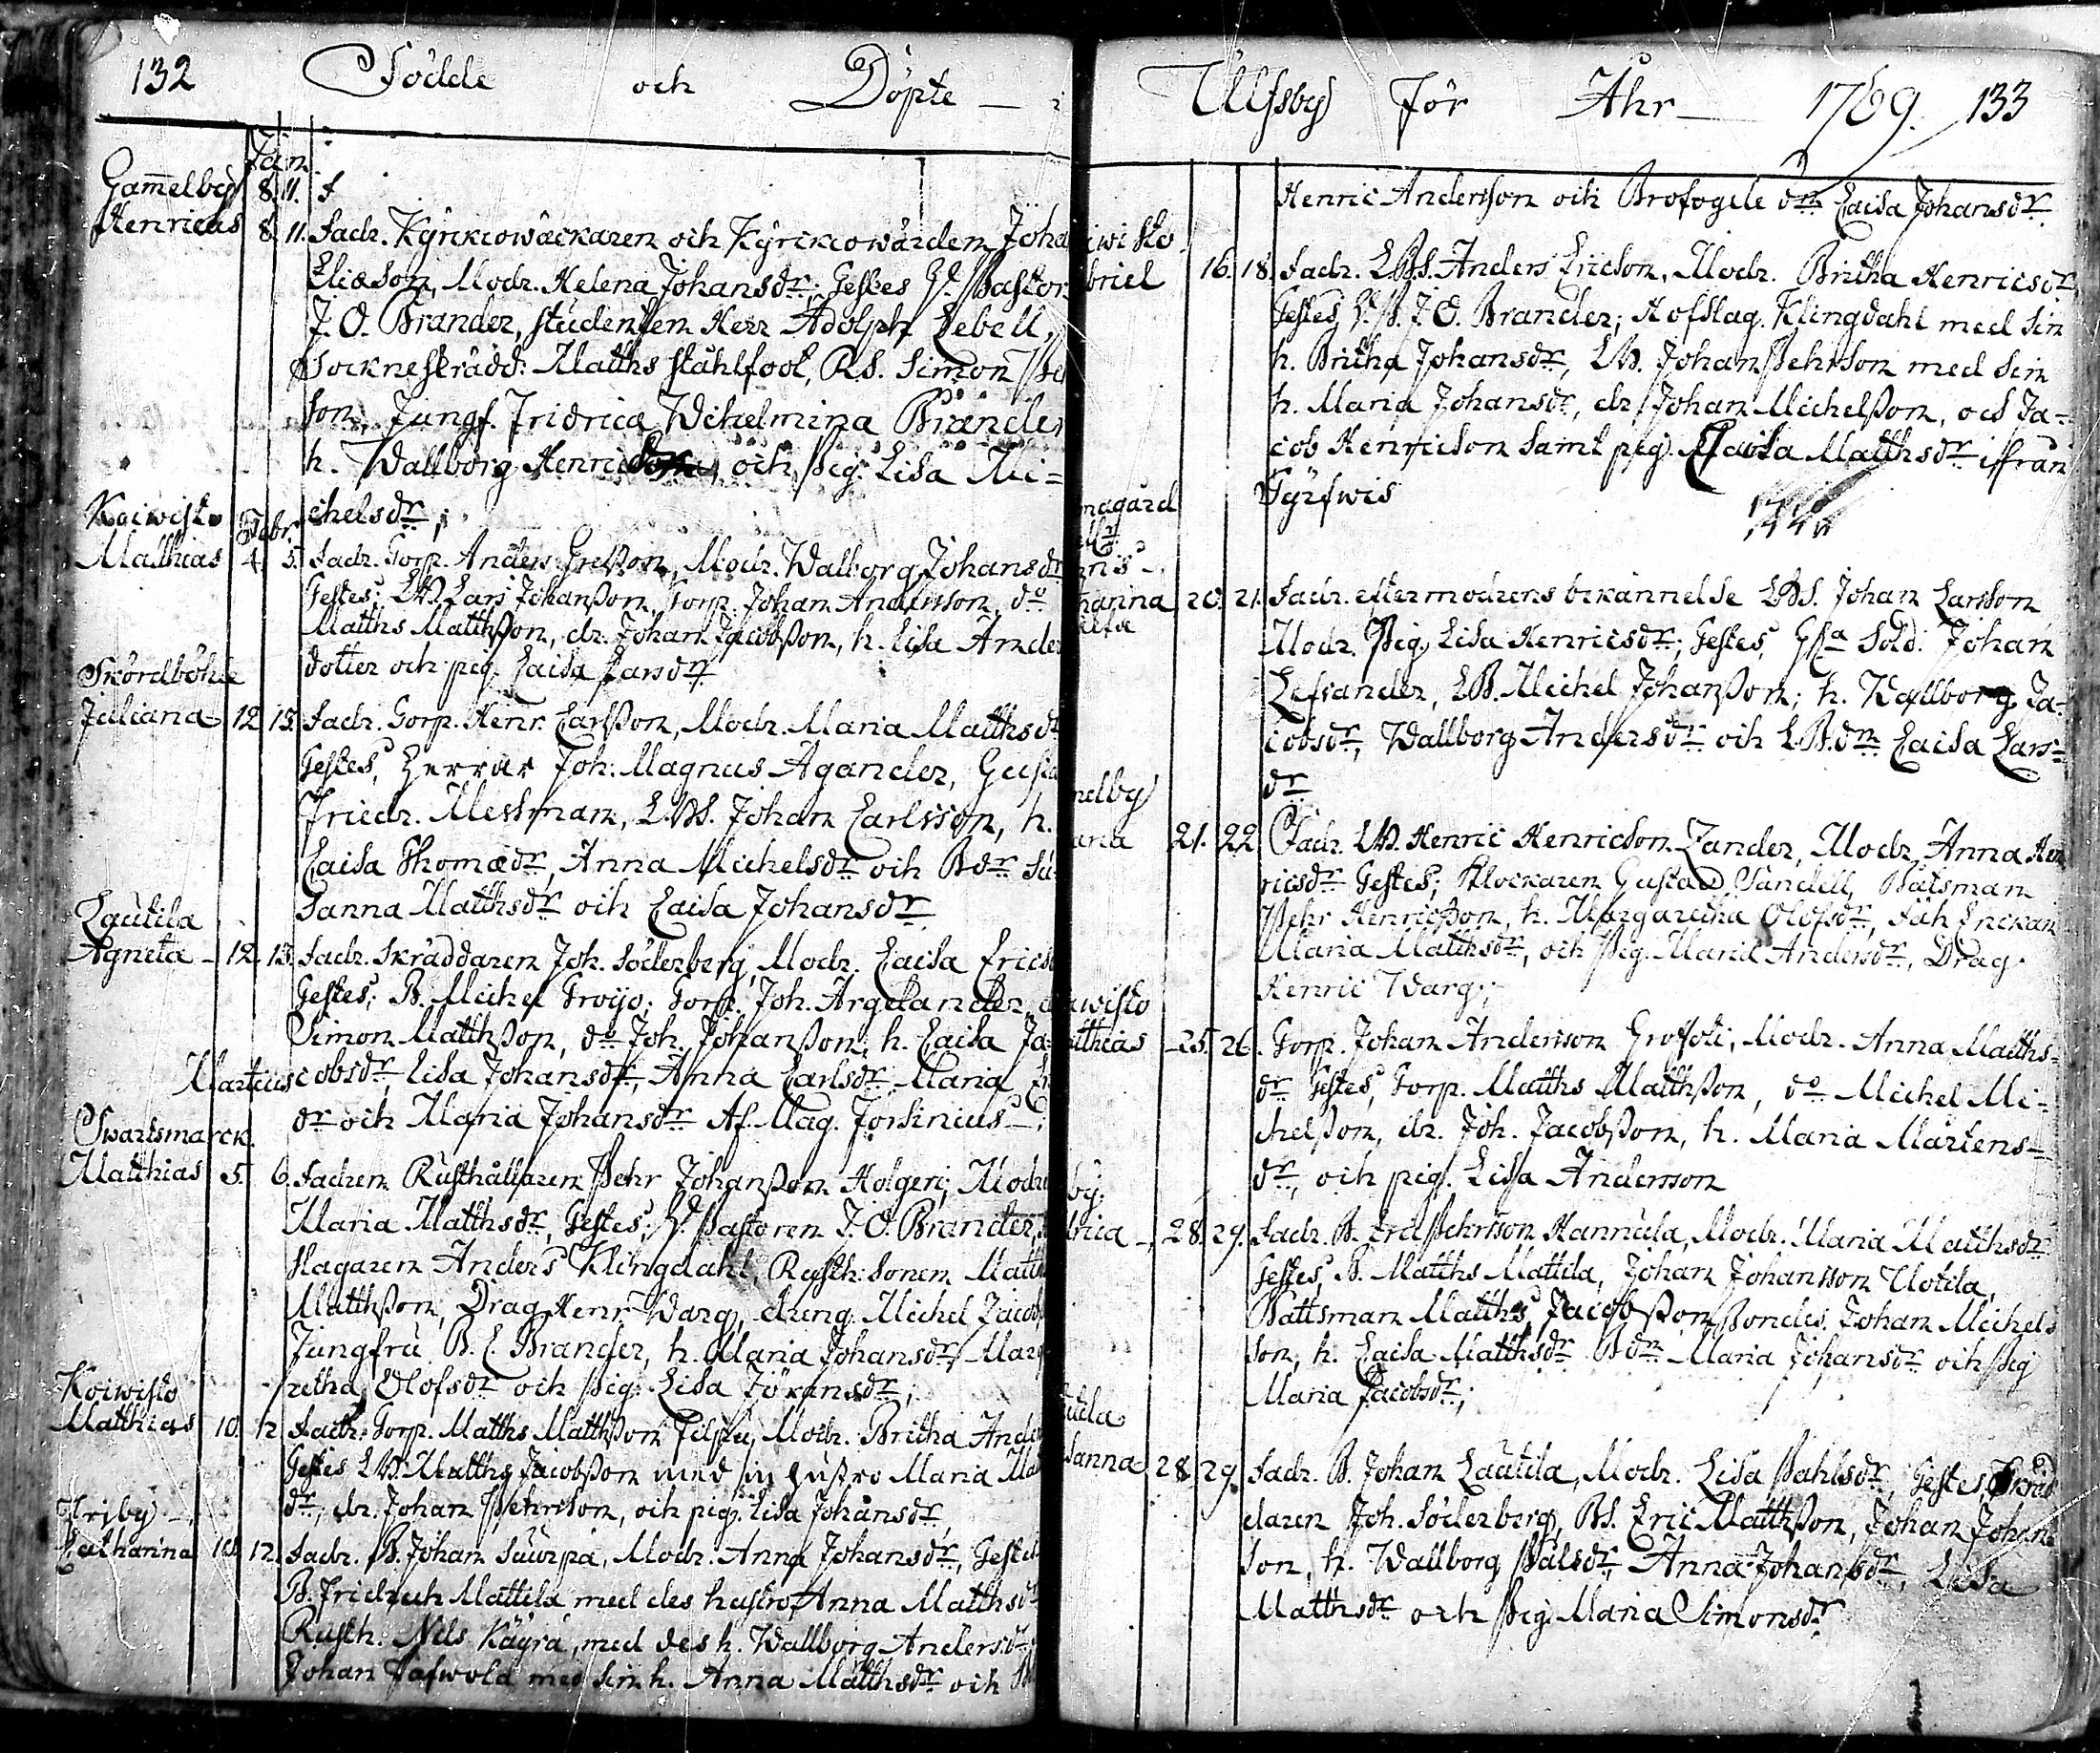 132 Födde och Döpte
Jan:
Gam̄elby 8. 11. F
Henricus 8. 11. Fadr. Kyrkiowäckaren och Kyrkiowärden Joha
Eliæson, Modr. Helena Johansdr; Testes Hr Pastor
J. O. Brander, studenten Herr Adolph Lebell,
Sockneskrädd: Matths Ståhlfoot, RS. Simon
son, Jungf. Fridrica Wilhelmina Brander
h. Wallborg Henrics, och Pig: Lisa Mi=
chelsdr;
Koiwisto Febr.
Matthias 4. 5. Fadr. Torp. Anders Grelsson, Modr. Walborg Johansdr
Testes; LB. Lars Johansson, Torp. Johan Andersson, do
Matths Mattsson, dr. Johan Jacobsson, h. Lisa Ander
dotter och pig. Caisa Larsdr
Skördböhle
Juliana 12 15. Fadr. Torp. Henr. Carlsson, Modr. Maria Matthsdr
Testes, Herrar Joh: Magnus Agander, Gusta
Friedr. Messman, L.BS. Johan Carlsson, h.
Caisa Thomædr, Anna Michelsdr och Bdr Su=
sanna Matthsdr och Caisa Johansdr
Lautila
Agneta 12. 13. Fadr. Skräddaren Joh. Söderberg, Modr. Caisa Erics
Testes; B. Michel Froijo; Torp. Joh. Argelander,
Simon Matthsson, do Joh. Johansson; h. Caisa Ja=
Martius cobsdr, Lisa Johansdr, Anna Carlsdr Maria
dr och Maria Johansdr Af Mag. Forsenius
Swartsmarck.
Matthias 5. 6. Fadren Rusthållaren Pehr Johansson Holgeri; Modr
Maria Matthsdr, Testes; Hr Pastoren J. O. Brander,
slagaren Anders Klingdahl, Rusth: sonen Matths
Matthsson, Drag. Henr. Warg, dreng. Michel Jacob
Jungfru B. C. Brander, h. Maria Johansdr, Marg
retha Olofsdr och Pig: Lisa Göransdr;
Koiwisto
Matthias 10. 12 Fadr. Torp. Matths Matthsson Filpu, Modr. Britha Ander
Testes LB. Matths Jacobsson med sin hustro Maria Mat
dr, dr. Johan Pehrsson, och pig. Lisa Johansdr,
Friby
Catharina 10. 12. Fadr. B. Johan Suurpä, Modr. Anna Johansdr, Testes
B. Fridrich Mattila med des hustro Anna Matthsdr
Rusth. Nils Käyrä, med des h. Wallborg Andersdr
Johan Tafwola med sin h. Anna Matthsdr och
Ulfsby För Åhr 1769. 133
Henric Andersson och Brofogde dr Caisa Johansdr
iwisto
briel 16. 18. Fadr. LBS. Anders Ericson, Modr. Britha Henricsdr
Testes, J. O. Brander; Hofslag. Klingdahl med sin
h. Britha Johansdr, LB. Johan Pehrson med sin
h. Maria Johansdr, dr. Johan Michelsson, och Ja=
cob Henricson samt pig. Caisa Matthsdr ifrån
Tyrfwis
magård
harina 20. 21. Fadr. efter modrens bekännelse LBS. Johan Larsson
Modr. Pig. Lisa Henricsdr; Testes, Sold. Johan
Lefvander, LB. Michel Johansson; h. Wallborg Ja=
cobsdr, Wallborg Andersdr och L.B.dr Caisa Lars=
dr
melby
aria 21. 22 Fadr. LB. Henric Henricson Zander, Modr. Anna Hen
ricsdr Testes; Klockaren Gustav Sandell, Båtsman
Pehr Henricsson, h. Margaretha Olofsdr, Enckan
Maria Matthsdr, och Pig. Maria Andersdr, Drag.
Henric Warg;
iwisto
atthias 25. 26. Torp. Johan Andersson Grofoti, Modr. Anna Matths=
dr Testes, Torp. Matths Matthsson, do Michel Mi=
chelsson, dr. Joh. Jacobsson, h. Maria Mårtens=
dr, och pig. Lisa Andersson
by.
drica 28. 29. Fadr. B. Eric Pehrsson Hannula, Modr. Maria Matthsdr
Testes, B. Matths Mattila, Johan Johansson Uotila,
Båttsman Matths Jacobsson Bondes. Johan Michels
son, h. Caisa Matthsdr Bdr Maria Johansdr och Pig
Maria Jacobsdr;
utila
sanna 28. 29. Fadr. B. Johan Lautila, Modr. Lisa Påhlsdr, Testes, Skräd
daren Joh. Söderberg, BS. Eric Matthsson, Johan Johans
son, h. Wallborg Pålsdr, Anna Johansdr, Lisa
Matthsdr och Pig. Maria Simonsdr